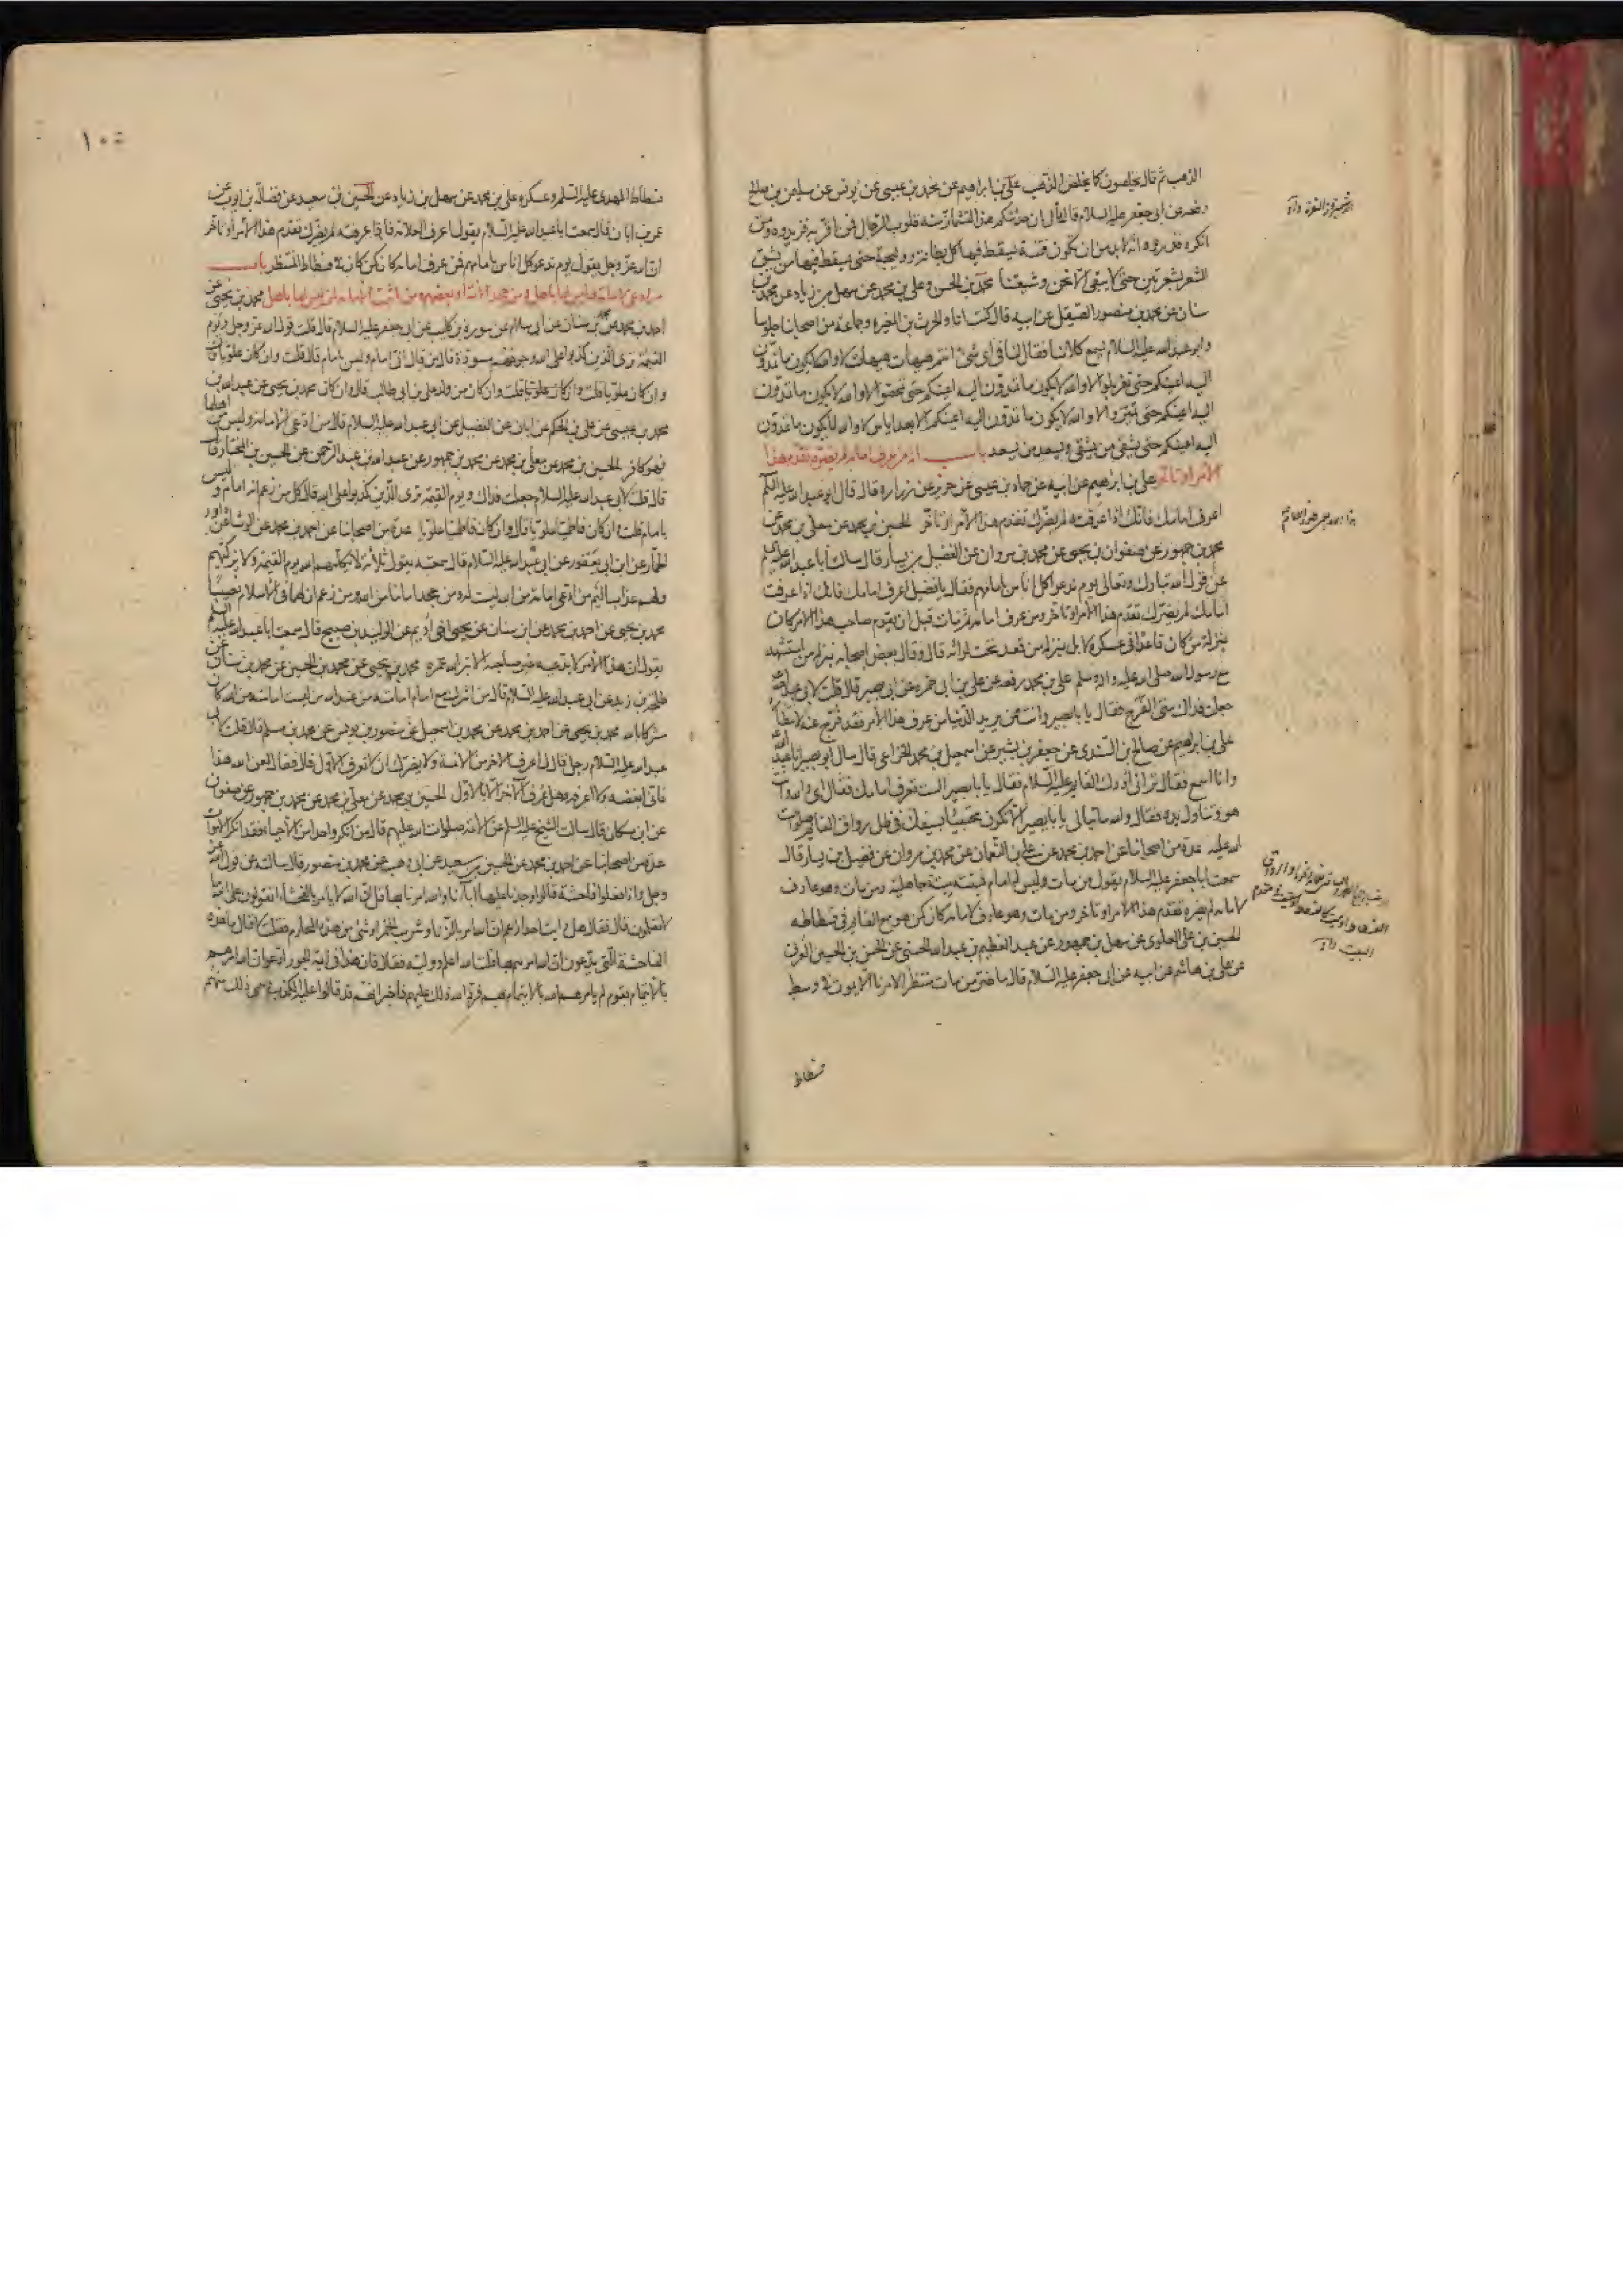 الذهب ثم قال يخلصون كما يخلص الذهب علي بن ابراهيم عن محمد بن عيسى عن يونس عن سليمن بن صالح
رفعه عن ابى جعفر عليه السلام قال قال ان حديثكم هذا لتشمئز منه قلوب الرجال فمن اقر به فزيدوه ومن
انكره فذروه انه لابد من ان تكون فتنة يسقط فيها كل بطانة ووليجة حتى يسقط فيها من يشق
الشعر بشعرتين حتى لا يبقى الا نحن وشيعتنا محمد بن الحسن وعلي بن محمد عن سهل بن زياد عن محمد بن
سنان عن محمد بن منصور الصيقل عن ابيه قال كنت انا والحرث بن المغيره وجماعة من اصحابنا جلوسا
وابو عبد الله عليه السلام يسمع كلامنا فقال لنا فى اى شئ انتم هيهات هيهات لا والله لا يكون ما تمدون
اليه اعينكم حتى تغربلوا لا والله لا يكون ما تمدون اليه اعينكم حتى تمحصوا لا والله لا يكون ما تمدون
اليه اعينكم حتى تميزوا لا والله لا يكون ما تمدون اليه اعينكم الا بعد اياس لا والله لا يكون ما تمدون
اليه اعينكم حتى يشقى من يشقى ويسعد من يسعد باب انه من عرف امامه لم يضره تقدم هذا
الامر او تاخر علي بن ابرهيم عن ابيه عن حماد بن عيسى عن حريز عن زراره قال قال ابو عبد الله عليه السلم
اعرف امامك فانك اذا عرفته لم يضرك تقدم هذا الامر او تاخر الحسين بن محمد عن معلى بن محمد عن
محمد بن جمهور عن صفوان بن يحيى عن محمد بن مروان عن الفضيل بن يسار قال سالت أبا عبد الله عليه السلم
عن قول الله تبارك وتعالى يوم ندعوا كل اناس بامامهم فقال يا فضيل اعرف امامك فانك اذا عرفت
امامك لم يضرك تقدم هذا الامر او تاخر ومن عرف امامه ثم مات قبل ان يقوم صاحب هذا الامر كان
بمنزلة من كان قاعدا فى عسكره لا بل بمنزلة من قعد تحت لوائه قال وقال بعض اصحابه بمنزلة من استشهد
مع رسول الله صلى الله عليه واله وسلم علي بن محمد رفعه عن علي بن ابى حمزه عن ابى بصير قال قلت لابى عبد الله
جعلت فداك متى الفرج فقال يا با بصير وانت ممن يريد الدنيا من عرف هذا الأمر فقد فرج عنه لانتظاره
علي بن ابراهيم عن صالح بن السندى عن جعفر بن بشير عن اسمعيل بن محمد الخزاعى قال سال أبو بصير ابا عبد الله
وانا اسمع فقال ترانى ادرك القايم عليه السلام فقال يا با بصير الست تعرف امامك فقال اى والله وانت
هو وتناول يده فقال والله ما تبالى يا با بصير ألا تكون محتبيا بسيفك فى ظل رواق القايم صلوات
الله عليه عدة من اصحابنا عن احمد بن محمد عن علي بن النعمان عن محمد بن مروان عن فضيل بن يسار قال
سمعت ابا جعفر عليه السلام يقول من مات وليس له امام فميتته ميتة جاهلية ومن مات وهو عارف
لامامه لم يضره تقدم هذا الامر او تاخر ومن مات وهو عارف لامامه كان كمن هو مع القايم فى فسطاطه
الحسين بن علي العلوى عن سهل بن جمهور عن عبد العظيم بن عبد الله الحسنى عن الحسن بن الحسين العرنى
عن علي بن هاشم عن ابيه عن ابى جعفر عليه السلام قال ما ضر من مات منتظرا لامرنا الا يموت فى وسط
فسطاط
فسطاط المهدى عليه السلم وعسكره علي بن محمد عن سهل بن زياد عن الحسين بن سعيد عن فضالة بن ايوب عن
عمر بن ابان قال سمعت ابا عبد الله عليه السلام يقول اعرف العلامة فاذا عرفته لم يضرك تقدم هذا الامر او تاخر
ان الله عز وجل يقول يوم ندعو كل اناس بامامهم فمن عرف امامه كان كمن كان فى فسطاط المنتظر باب
من ادعى الامامة وليس لها باهل ومن جحد الائمة او بعضهم ومن اثبت الامامة لمن ليس لها باهل محمد بن يحيى عن
احمد بن محمد عن محمد بن سنان عن ابى سلام عن سورة بن كليب عن ابى جعفر عليه السلام قال قلت قول الله عز وجل ويوم
القيمة ترى الذين كذبوا على الله وجوههم مسودة قال من قال انى امام وليس بامام قال قلت وان كان علويا قال
وان كان علويا قلت وان كان من ولد علي بن ابى طالب قال وان كان محمد بن يحيى عن عبد الله بن
محمد بن عيسى عن علي بن الحكم عن ابان عن الفضيل عن ابى عبد الله عليه السلام قال من ادعى الامامة وليس من اهلها
فهو كافر الحسين بن محمد عن معلى بن محمد عن محمد بن جمهور عن عبد الله بن عبد الرحمن عن الحسين بن المختار قال
قال قلت لابى عبد الله عليه السلام جعلت فداك ويوم القيمة ترى الذين كذبوا على الله قال كل من زعم انه امام وليس
بامام قلت وان كان فاطميا علويا قال وان كان فاطميا علويا عدة من اصحابنا عن احمد بن محمد عن الوشا عن داود
الحمار عن ابن ابى يعفور عن ابى عبد الله عليه السلام قال سمعته يقول ثلاثة لا يكلمهم الله يوم القيمة ولا يزكيهم
ولهم عذاب اليم من ادعى امامة من الله ليست له ومن جحد اماما من الله ومن زعم ان لهما فى الاسلام نصيبا
محمد بن يحيى عن احمد بن محمد عن ابن سنان عن يحيى اخى أديم عن الوليد بن صبيح قال سمعت ابا عبد الله عليه السلم
يقول ان هذا الامر لا يدعيه غير صاحبه الا بتر الله عمره محمد بن يحيى عن محمد بن الحسين عن محمد بن سنان عن
طلحة بن زيد عن ابى عبد الله عليه السلام قال من اشرك مع امام امامته من عند الله من ليست امامته من الله كان
مشركا بالله محمد بن يحيى عن احمد بن محمد عن محمد بن اسمعيل عن منصور بن يونس عن محمد بن مسلم قال قلت لابى
عبد الله عليه السلام رجل قال لى اعرف الاخر من الائمة ولا يضرك ان لا تعرف الاول قال فقال لعن الله هذا
فانى ابغضه ولا اعرفه وهل عرف الآخر الا بالاول الحسين بن محمد عن معلى بن محمد عن محمد بن جمهور عن صفوان
عن ابن مسكان قال سالت الشيخ عليه السلم عن الائمة صلوات الله عليهم قال من انكر واحدا من الاحياء فقد انكر الاموات
عدة من اصحابنا عن احمد بن محمد عن الحسين بن سعيد عن ابى وهب عن محمد بن منصور قال سالته عن قول الله عز
وجل واذا فعلوا فاحشة قالوا وجدنا عليها اباءنا والله امرنا بها قل ان الله لا يامر بالفحشاء اتقولون على الله ما
لا تعلمون قال فقال هل رايت احدا زعم ان الله امر بالزنا وشرب الخمر او شئ من هذه المحارم فقلت لا فقال ما هذه
الفاحشة التى يدعون ان الله امرهم بها قلت الله اعلم ووليه فقال فان هذا فى ائمة الجور ادعوا ان الله امرهم
بالايتمام بقوم لم يامرهم الله بالايتمام بهم فرد الله ذلك عليهم فاخبر انهم قد قالوا عليه الكذب وسمى ذلك منهم